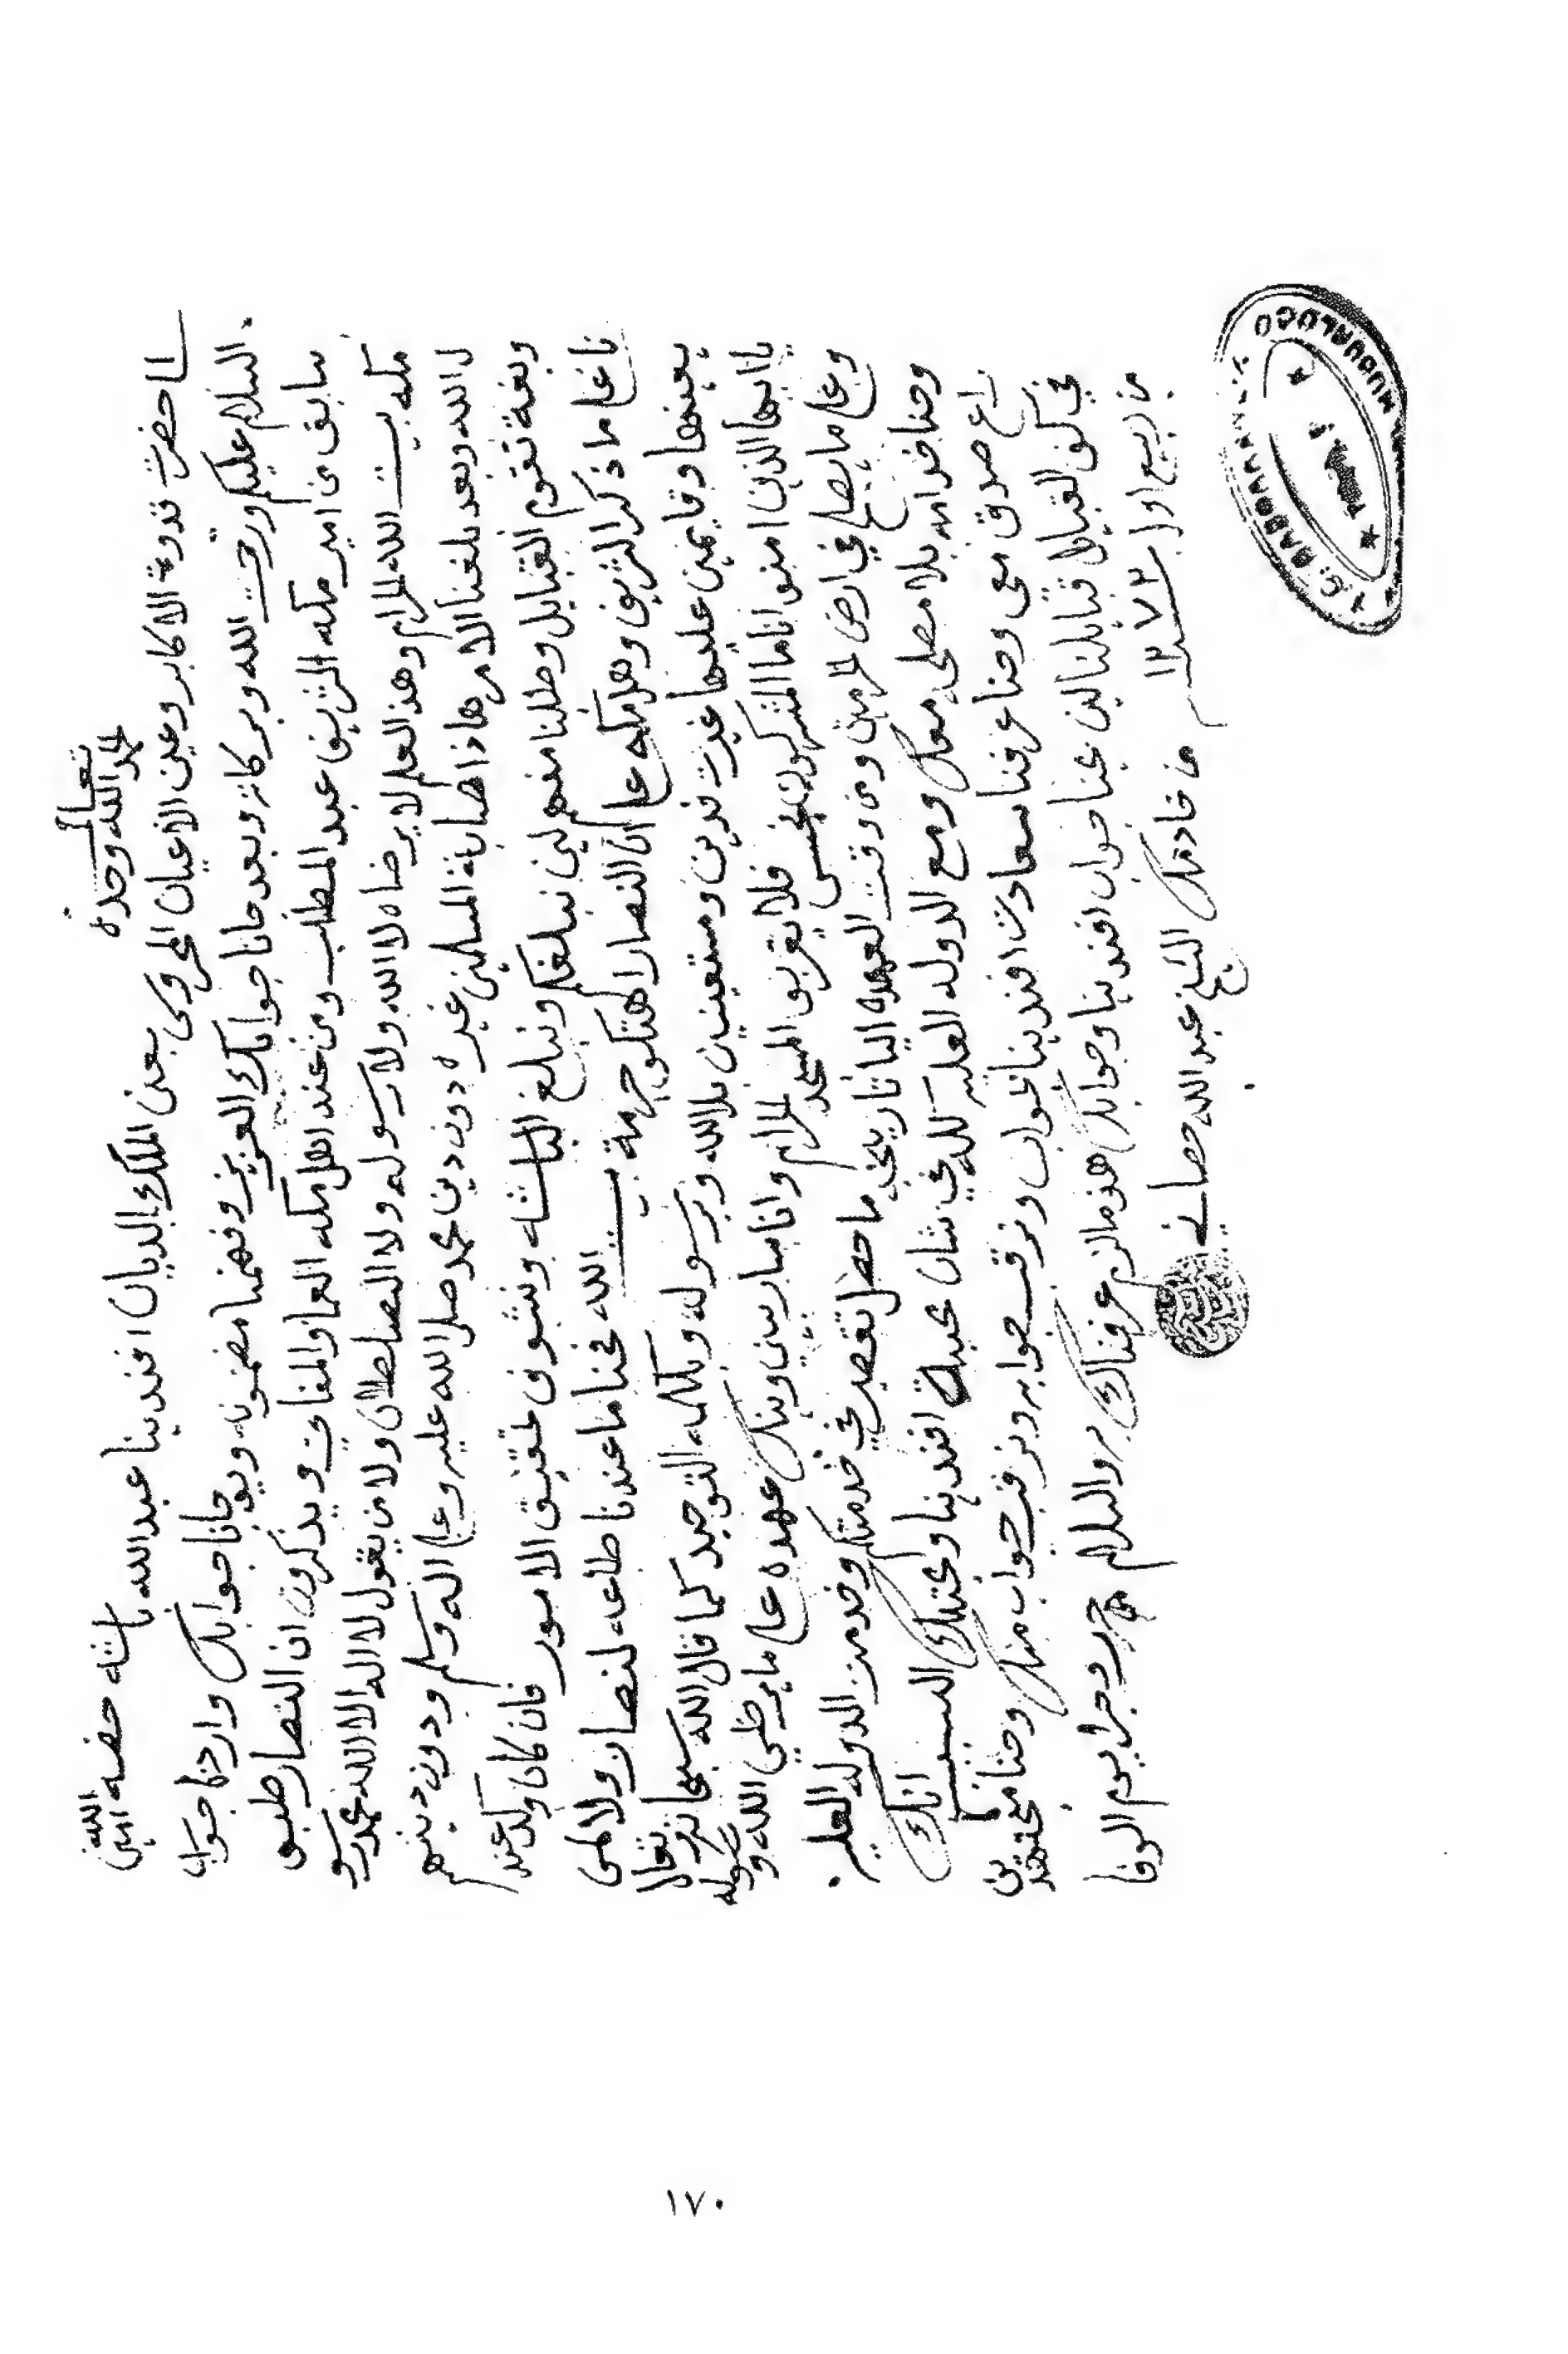 الحمد لله وحده
تعالى
الى حضرت قدوة الاكابر وعين الاعيان المحروس بعين الملك الديان افندينا عبدالله باشه حفضه الله امين
السلام عليكم ورحمت الله وبركاته وبعد جانا جوابك العزيز وفهمنا مضمونه ويوم جانا جوابك واردنا جواب
سابق من امير مكه الشريف عبد المطلب ومن عند اهل مكه العلما والمفاتي ويذكرون ان النصار طبو
مكه بيت الله الحرام وهذ العلم لا يرضاه لا الله ولا رسوله ولا الصلطان ولا من يقول لا اله الا الله محمد رسو
ل الله وبعد بلغنا الامر هاذا اصابة المسلمين غيره دون دين محمد صلى الله عليه وعلى اله وسلم ودون دينهم
وبغة تقوم القبايل وطلبنا منهم لين نبلغكم ونبلغ الباشه ونشوف حقيق الامور فان كان وكد عند
نا على ما ذكر الشريف وهل مكه على ان النصارا هتكو حرمة بيت الله فحنا ما عندنا طاعه لنصار ولا لمن
يعينها وقايمين عليها غيرت فدين ومستعينين بالله وبرسوله وبكلمه التوحيد كما قال الله سبحانه وتعالا
يا ايها الذين امنو انما المشركون نجس فلا يقربو المسجد الحرام وانا صار بيني وبينك عهده على ما يرظي الله ورسوله
وعلى ما يصلح في ارض الحرمين ومن وقت العهده اليا تاريخه ما حصل تقصير في خدمتكم وخدمت الدوله العليه
وحنا خدامه بلا مصلحه معك ومع الدوله العليه كله في شان محبتك افندينا ومحبتك السبب انك
راع صدق معي وحنا عرفنا سعادت افندينا بجواب ونرقب جوابه ونرقب جواب منك وحنا مجتهدين
في كف القبايل قبايلنا لين يجينا جواب افندينا وجوابك هذ مالزم عرفناك به والسلام حرر وجرا يوم الوفا
من ربيع اول سنه ١٢٧٢ من خادمك الشيخ عبدالله حصاني
١٧٠